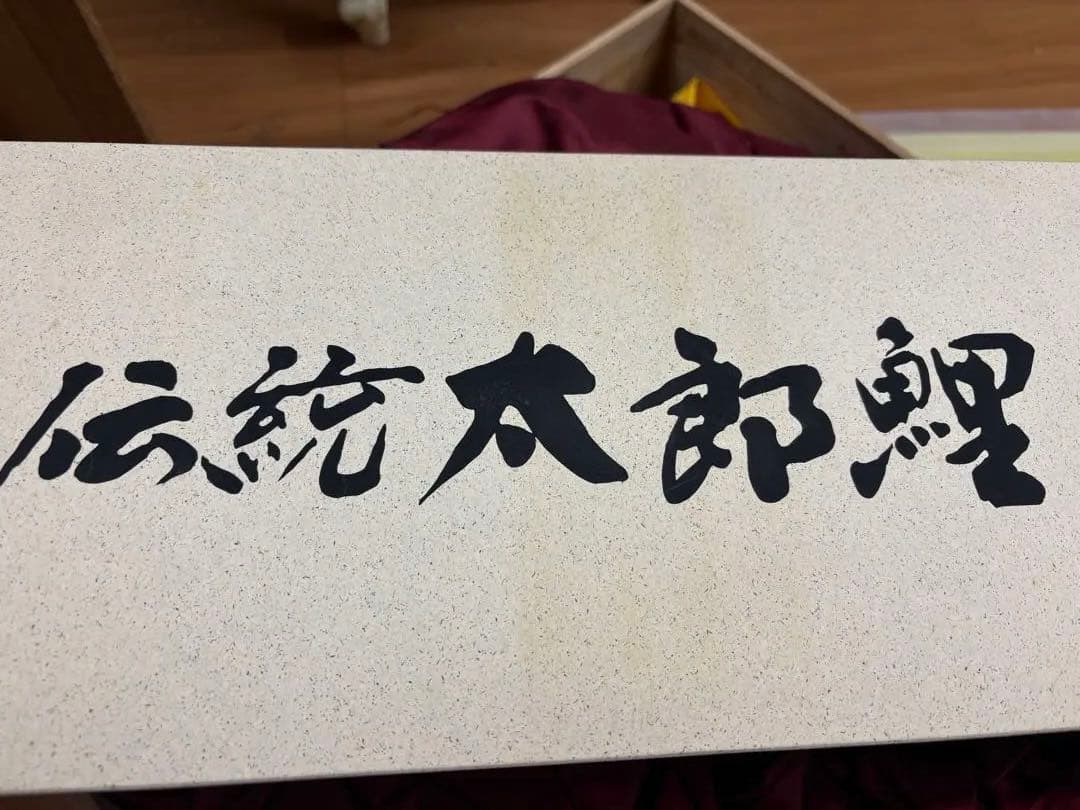 伝統太郎鯉